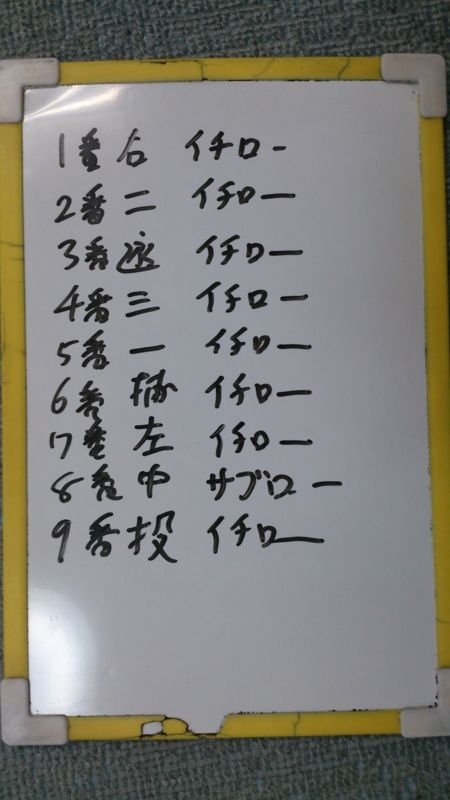 1番右 イチロー
2番二 イチロー
3番遊 イチロー
4番三 イチロー
5番一 イチロー
6番捕 イチロー
7番左 イチロー
8番中 サブロー
9番投 イチロー